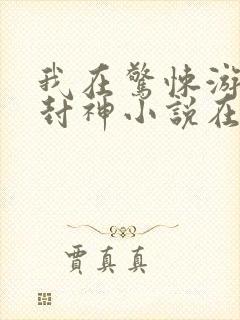 我在驚悚游
封神小說在
賈真真